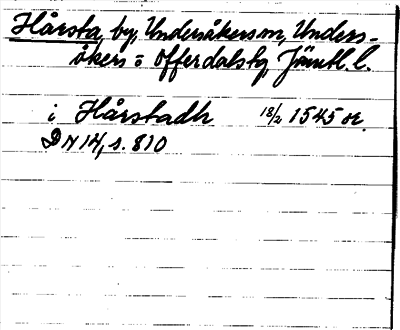 Hårsta, by, Undersåkers sn, Unders-
åkers o Offerdals tg, Jämtl. l.
i Hårstadh 18/2 1545 or.
DN 14, s. 810